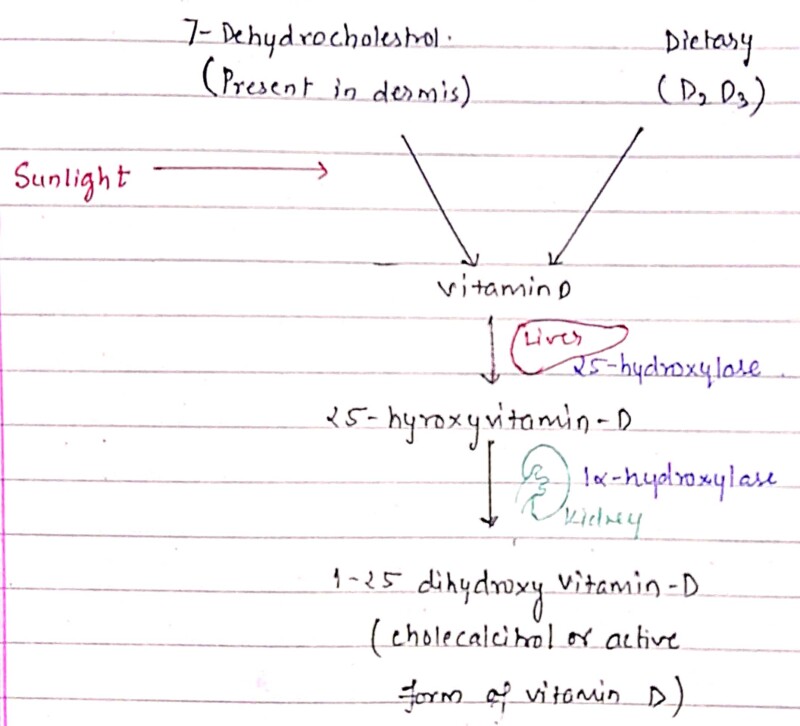 7- Dehydrocholestrol.
Dietary
(Present in dermis)
(D2 D3)
Sunlight
vitamin D
Liver
25-hydroxylase
25-hyroxyvitamin-D
1α-hydroxylase
Kidney
1-25 dihydroxy vitamin-D
(cholecalcitrol or active
form of vitamin D)